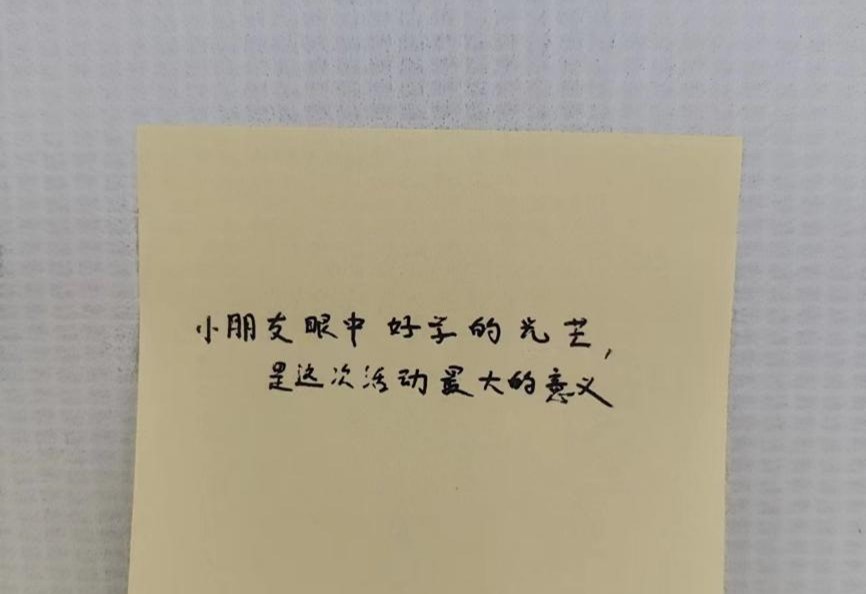 小朋友眼中好学的光芒，
是这次活动最大的意义